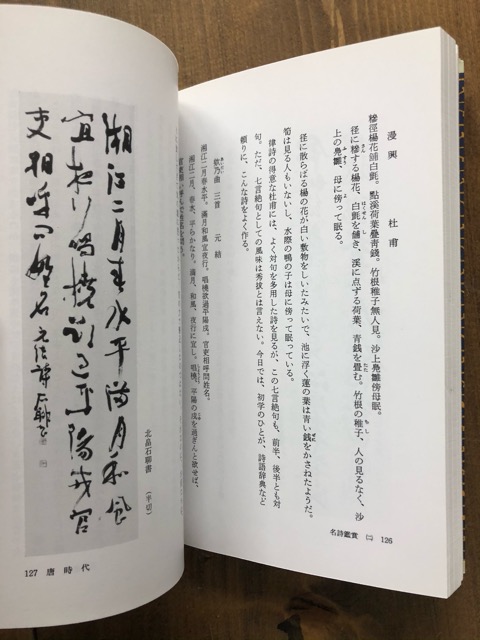 漫興　　杜甫
糝徑楊花舖白氈。點溪荷葉疊青錢。竹根稚子無人見。沙上鳧雛傍母眠。
径に糝する楊花、白氈を鋪き、溪に点ずる荷葉、青銭を畳む。竹根の稚子、人の見るなく、沙
上の鳧雛、母に傍って眠る。
径に散らばる楊の花が白い敷物をしいたみたいで、池に浮く蓮の葉は青い銭をかさねたようだ。
筍は見る人もいないし、水際の鴨の子は母に傍って眠っている。
律詩の得意な杜甫には、よく対句を多用した詩を見るが、この七言絶句も、前半、後半とも対
句。ただ、七言絶句としての風味は秀抜とは言えない。今日では、初学のひとが、詩語辞典など
頼りに、こんな詩をよく作る。
欸乃曲　三首　元結
湘江二月春水平。滿月和風宜夜行。唱橈欲過平陽戍。官吏相呼問姓名。
湘江二月、春水、平らかなり。満月、和風、夜行に宜し。唱橈、平陽の戍を過ぎんと欲せば、
名詩鑑賞　㈡　126
湘江二月春水平滿月和風
宜夜行唱橈欲過平陽戍官
吏相呼問姓名
北畠石聊書　（半切）
127　唐時代